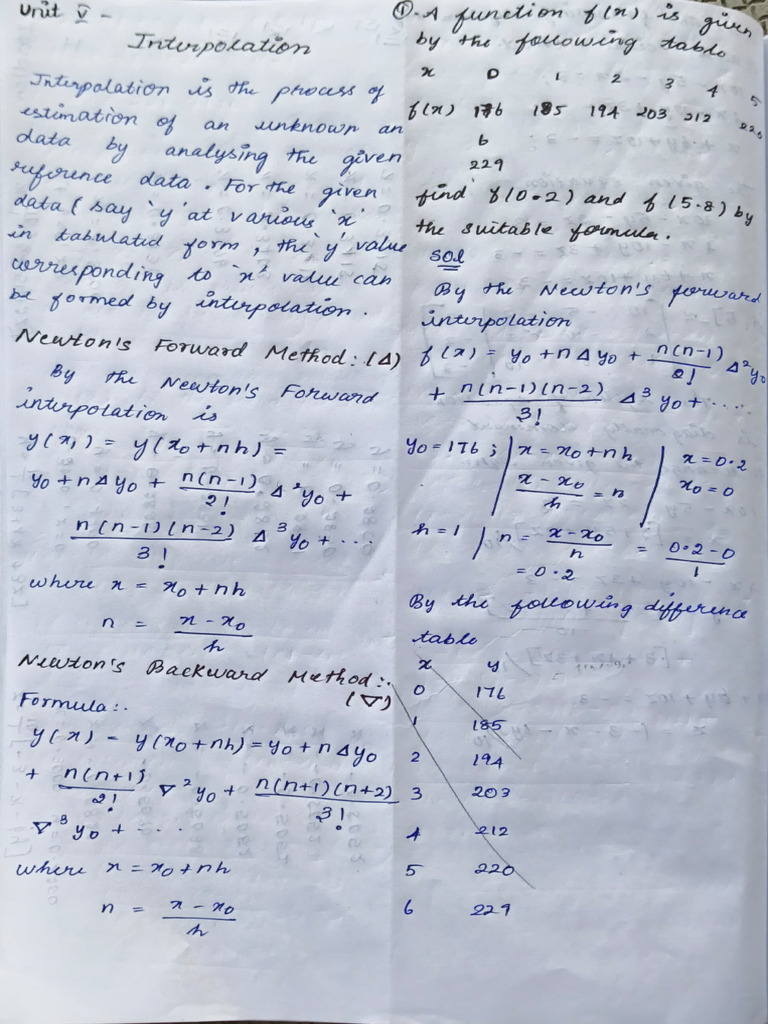 Unit V -
Interpolation
Interpolation is the process of
estimation of an unknown an
data by analysing the given
reference data. For the given
data (say 'y' at various 'x'
in tabulated form, the 'y' value
corresponding to 'x' value can
be formed by interpolation.
Newton's Forward Method: (Δ)
By the Newton's Forward
interpolation is
y(x₁) = y(x₀+nh) =
y₀+nΔy₀ + n(n-1)/2! Δ²y₀ +
n(n-1)(n-2)/3! Δ³y₀ + ...
where x = x₀+nh
n = x-x₀/h
Newton's Backward Method:.
(∇)
Formula:.
y(x) - y(x₀+nh) = y₀+nΔy₀
+ n(n+1)/2! ∇²y₀ + n(n+1)(n+2)/3!
∇³y₀ + ...
where x = x₀+nh
n = x-x₀/h
①. A function f(x) is given
by the following table
x 0 1 2 3 4 5
f(x) 176 185 194 203 212 220
6
229
find f(0.2) and f(5.8) by
the suitable formula.
Sol
By the Newton's forward
interpolation
f(x) = y₀+nΔy₀ + n(n-1)/2! Δ²y₀
+ n(n-1)(n-2)/3! Δ³y₀ + ....
y₀=176; | x = x₀+nh | x=0.2
x-x₀/h = n | x₀=0
h=1 | n = x-x₀/n = 0.2-0/1
= 0.2
By the following difference
table
x y
0 176
1 185
2 194
3 203
4 212
5 220
6 229